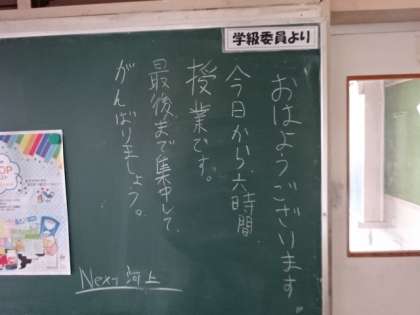 学級委員より
おはようございます。
今日から六時間
授業です。
最後まで集中して、
がんばりましょう。
Next 河上